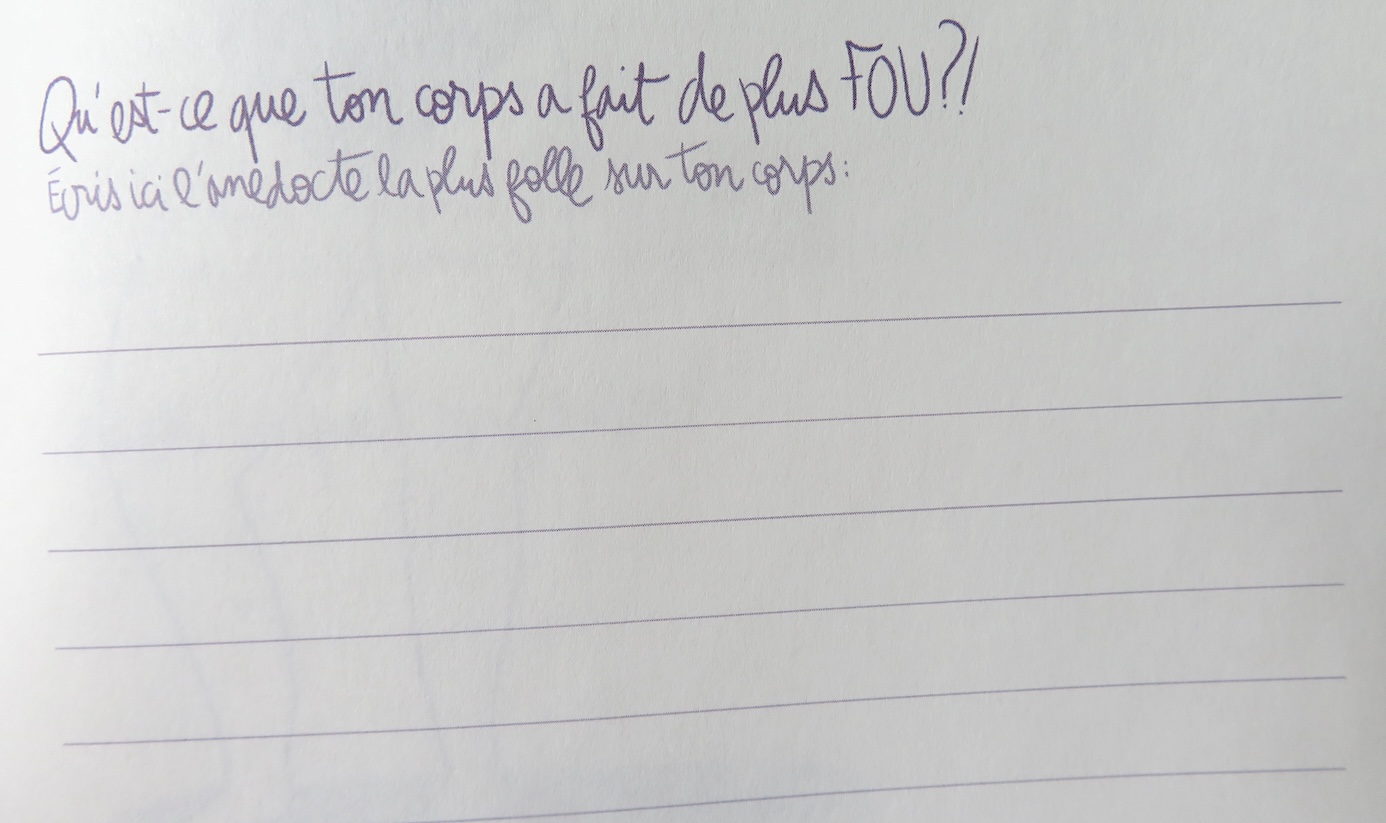 Qu'est-ce que ton corps a fait de plus FOU?!
Écris ici l'anédocte la plus folle sur ton corps: